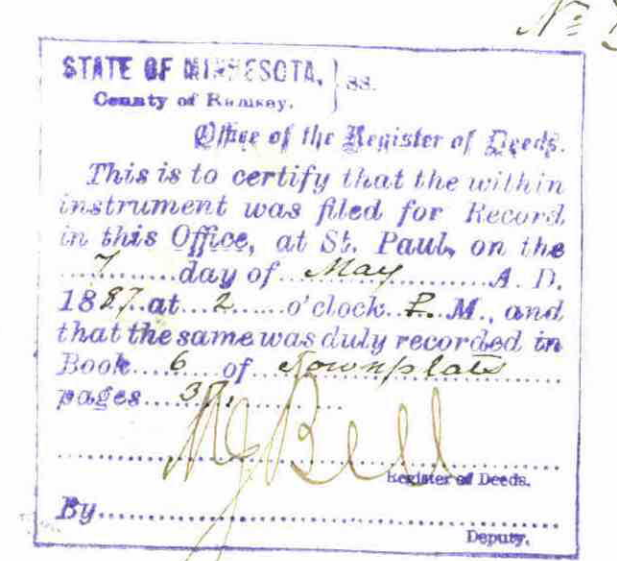 No
STATE OF MINNESOTA, } SS.
County of Ramsey.
Office of the Register of Deeds.
This is to certify that the within
instrument was filed for Record
in this Office, at St. Paul, on the
7 day of May A. D.
1887 at 2 o'clock P. M., and
that the same was duly recorded in
Book 6 of Townplats
pages 37.
Bell
Register of Deeds.
By
Deputy.